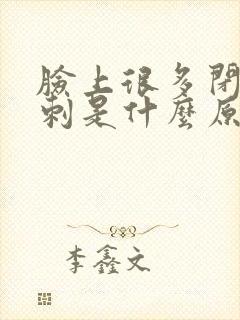 臉上很多閉
刺是什麼原
李鑫文